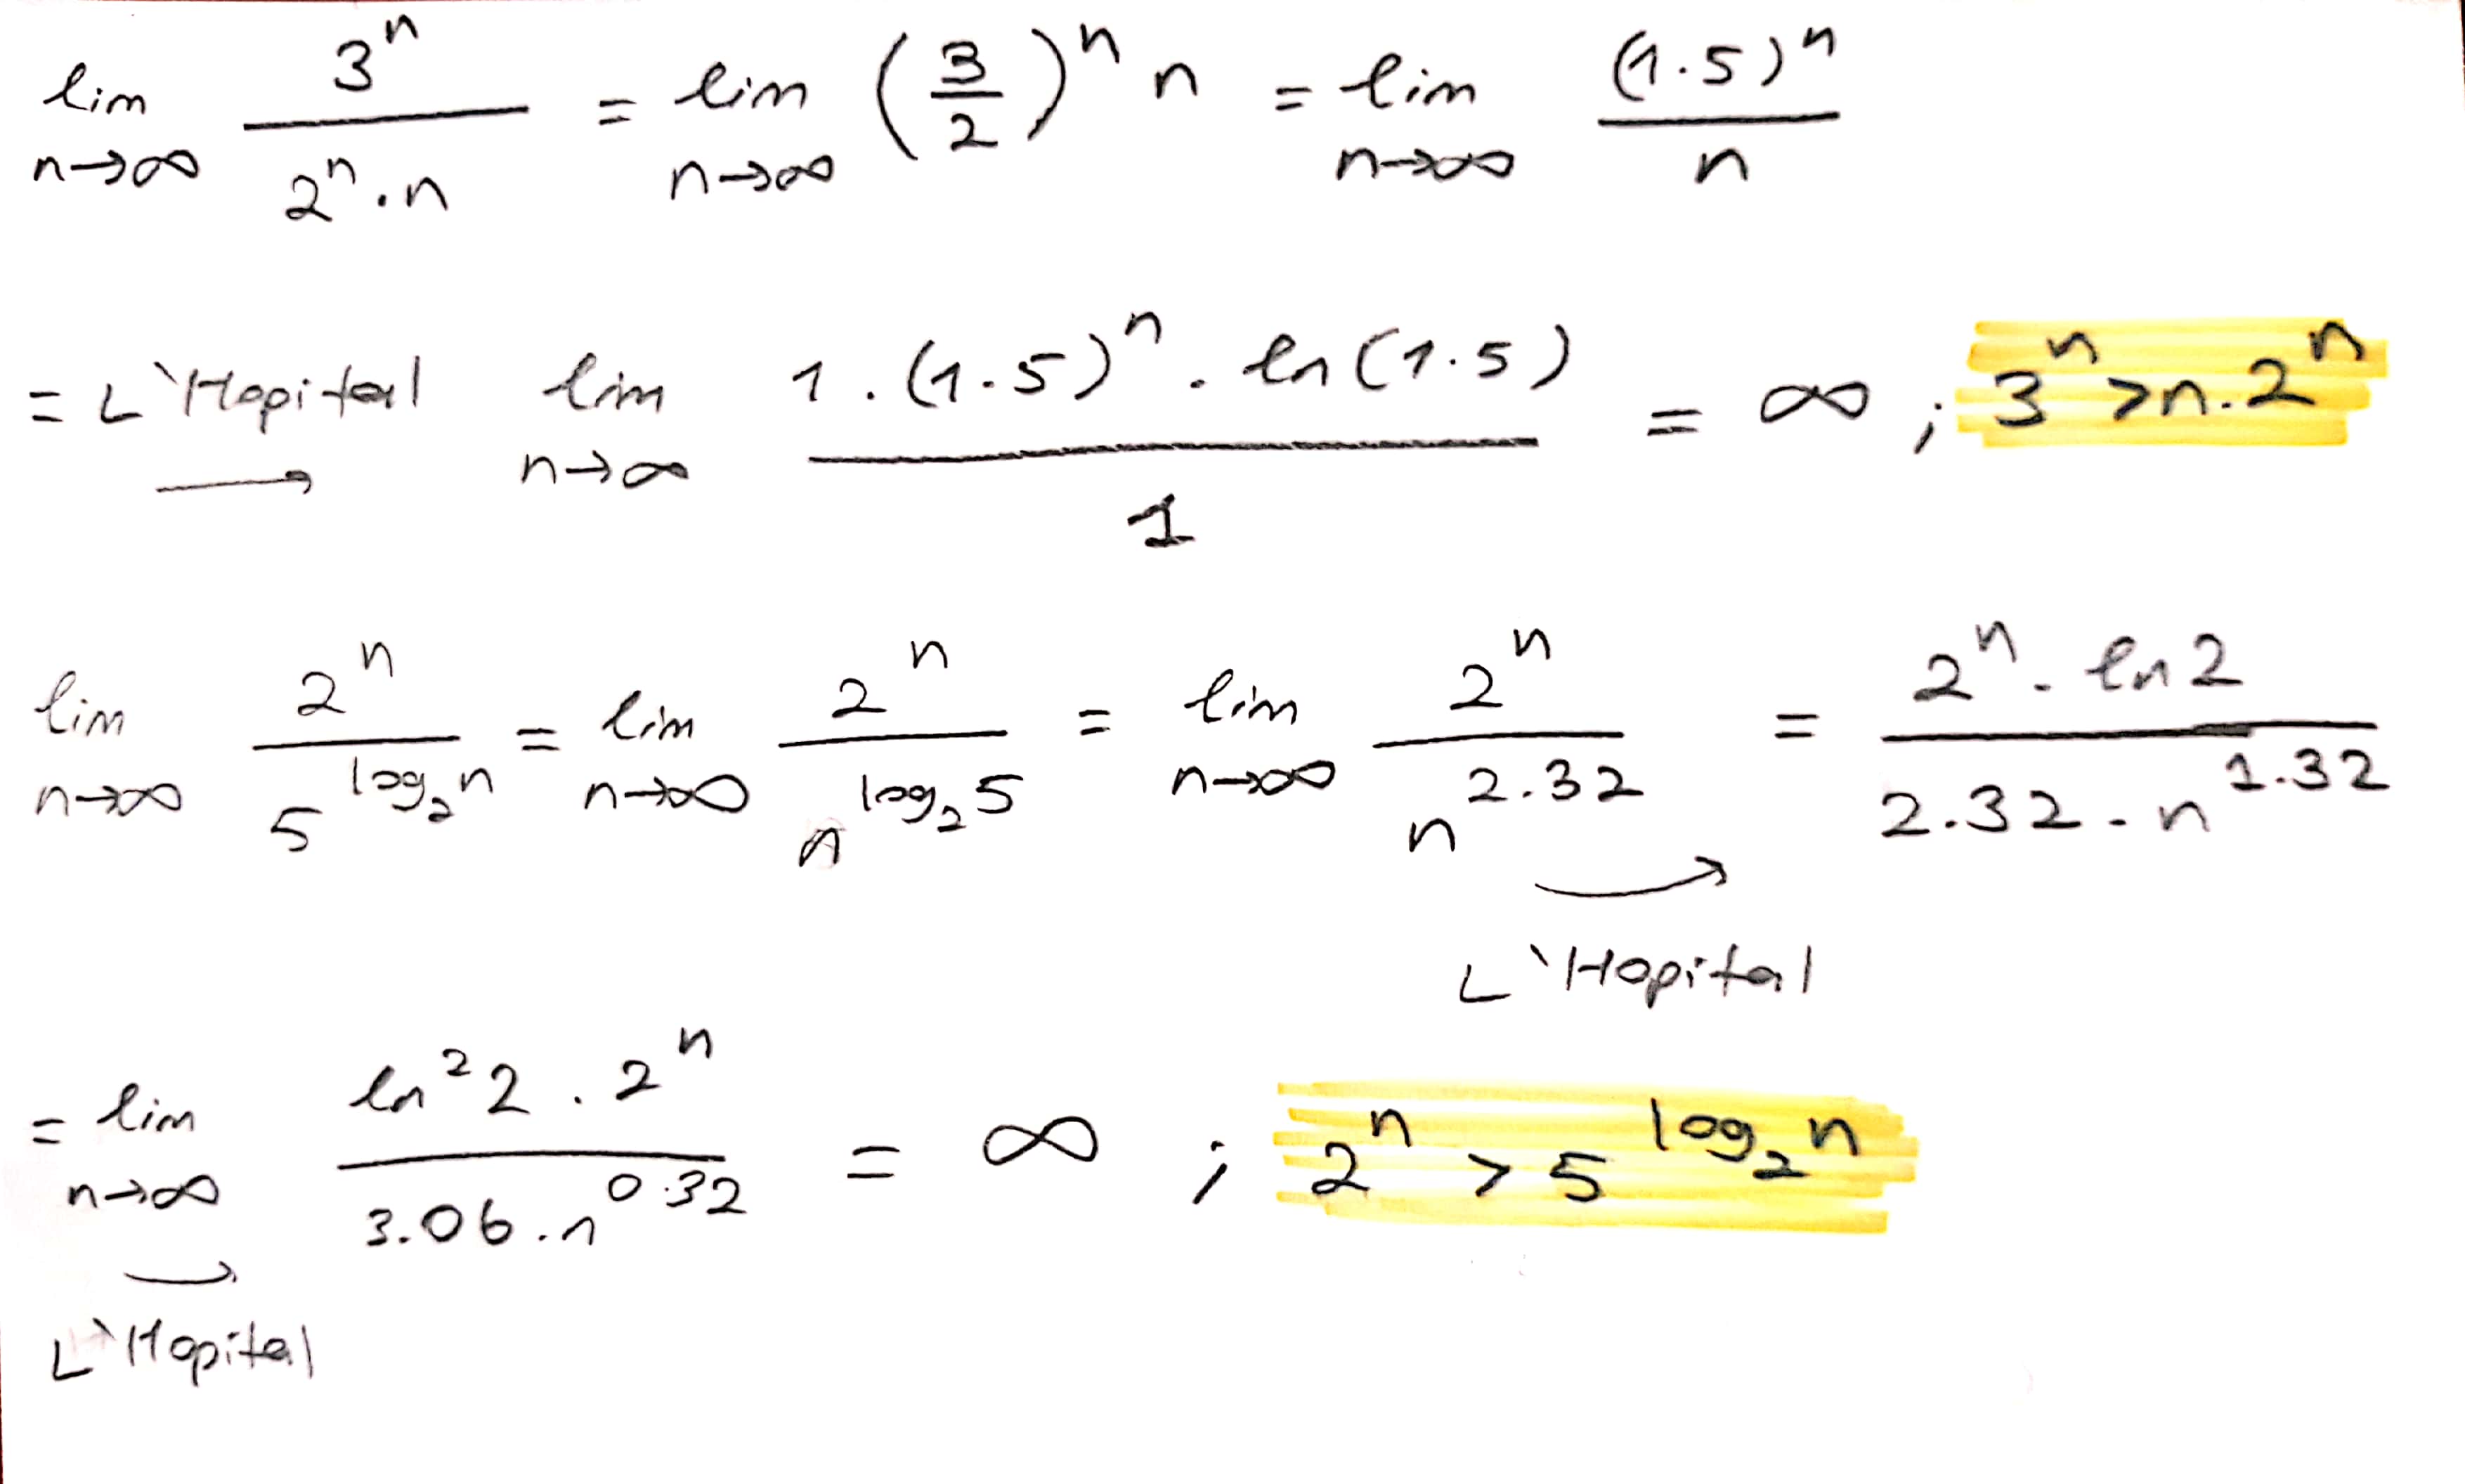 lim n→∞ 3ⁿ / 2ⁿ·n = lim n→∞ (3/2)ⁿ n = lim n→∞ (1.5)ⁿ / n
= L`Hopital → lim n→∞ 1.(1.5)ⁿ . ln(1.5) / 1 = ∞ ; 3ⁿ > n.2ⁿ
lim n→∞ 2ⁿ / 5^(log₂n) = lim n→∞ 2ⁿ / n^(log₂5) = lim n→∞ 2ⁿ / n^2.32 = 2ⁿ. ln2 / 2.32.n^1.32
→
L`Hopital
= lim n→∞ ln²2 . 2ⁿ / 3.06.n^0.32 = ∞ ; 2ⁿ > 5^(log₂n)
→
L`Hopital